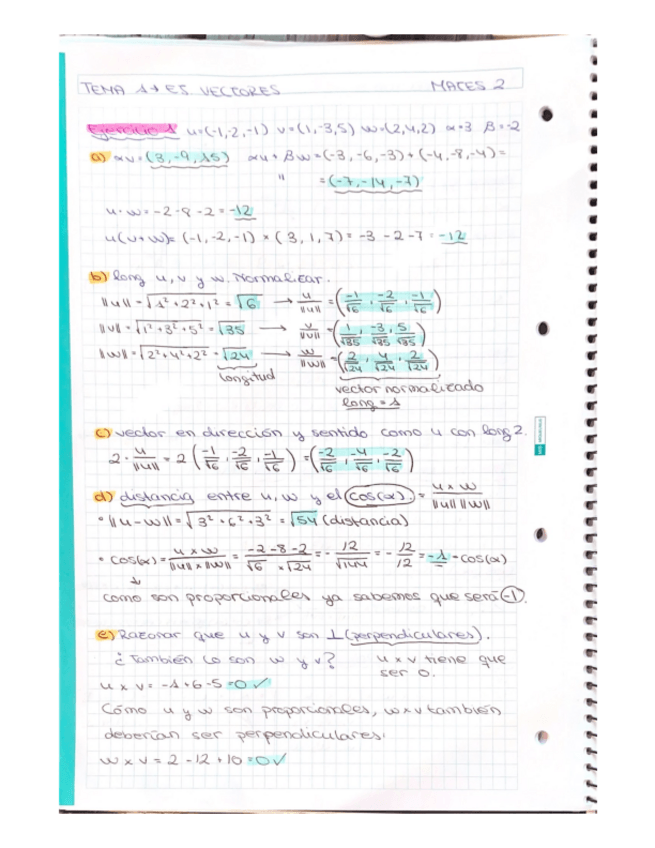 TEMA 1 → E5 VECTORES MATES 2
Ejercicio 1 u=(-1,-2,-1) v=(1,-3,5) w=(2,4,2) α=3 β=-2
a) αv=(3,-9,15) αu+βw=(-3,-6,-3)+(-4,-8,-4)=
" =(-7,-14,-7)
u·w=-2-8-2=-12
u(v+w)=(-1,-2,-1)×(3,1,7)=-3-2-7=-12
b) long u, v y w. Normalizar.
||u||=√1²+2²+1²=√6 → u/||u||=(-1/√6, -2/√6, -1/√6)
||v||=√1²+3²+5²=√35 → v/||v||=(1/√35, -3/√35, 5/√35)
||w||=√2²+4²+2²=√24 → w/||w||=(2/√24, 4/√24, 2/√24)
longitud vector normalizado
long=1
c) vector en dirección y sentido como u con long 2.
2·u/||u||=2(-1/√6, -2/√6, -1/√6)=(-2/√6, -4/√6, -2/√6)
d) distancia entre u, w y el cos(α).=u×w/||u|| ||w||
• ||u-w||=√3²+6²+3²=√54 (distancia)
• cos(α)=u×w/||u||×||w||=-2-8-2/√6×√24=-12/√144=-12/12=-1=cos(α)
↓
como son proporcionales ya sabemos que será -1.
e) Razonar que u y v son ⊥ (perpendiculares).
¿También lo son w y v? u×v tiene que
ser 0.
u×v=-1+6-5=0 ✓
Cómo u y w son proporcionales, w×v también
deberían ser perpendiculares.
w×v=2-12+10=0 ✓